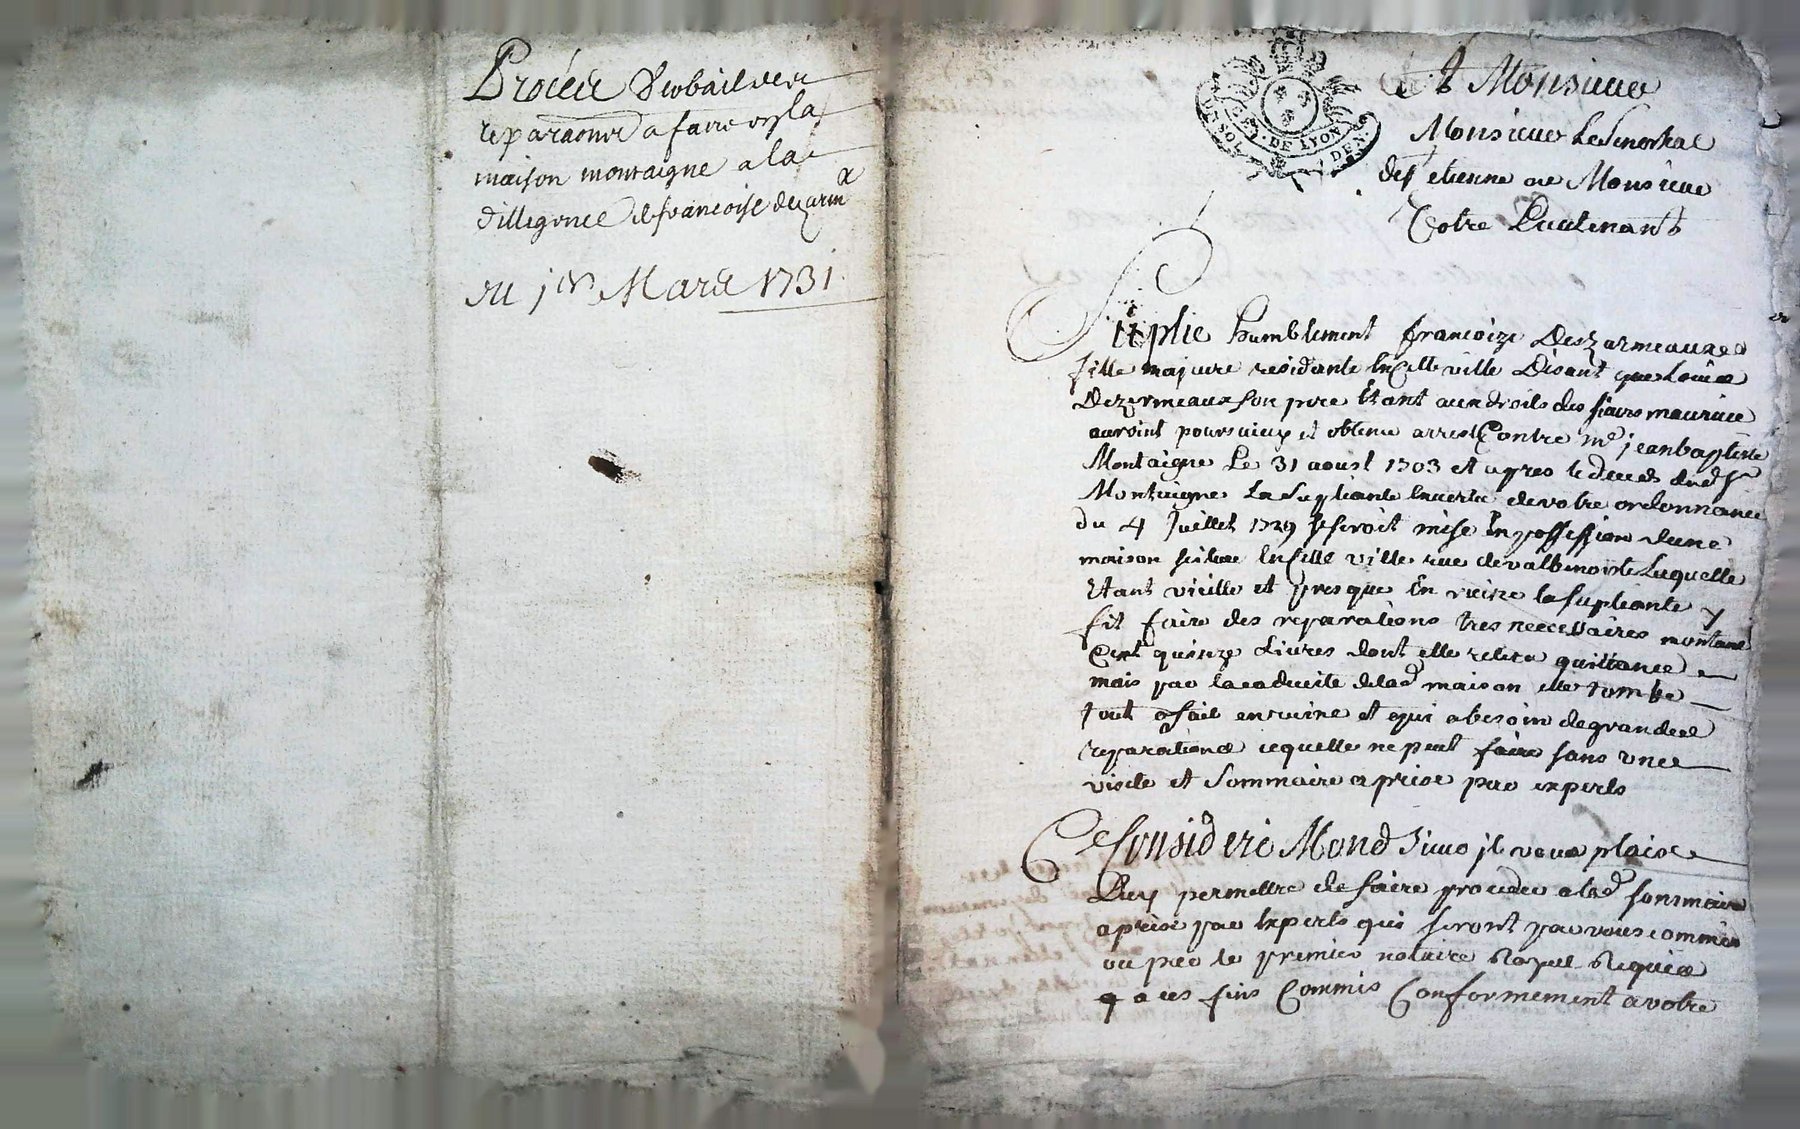 Procés Verbail des
reparaons a faire en la
maison montaigne a la
dilligence de francoise dezarmx
du 1er Mars 1731
SOL
GEN. DE LYON
DEN.
A Monsieur
Monsieur Le Senechal
de St etienne ou Monsieur
Votre Lieutenant
Suplie humblement francoize Deszarmeauxes
fille majure residante En Cette ville Disant que Loüis
Dezermeaux son pere Etant aux droits des sieurs maurice
auroint poursuiuy et obtenu arrest Contre me jean baptiste
Montaigne Le 31 aoust 1703 et apres le deces dud sr
Montaigne La Supliante En vertu de votre ordonnance
du 4 Juillet 1729 Se seroit mise En possession dune
maison scitue En Cette ville rue de valbenoiste Laquelle
Etant vieille et presque En ruine la supliante y
fit faire des reparations tres necessaires montant
Cent quinze Livres dont elle retira quittance
mais par la caducite de lad maison elle tombe
tout a fait en ruine et qui a besoin de grandes
reparations ce quelle ne peut faire sans une
visite et Sommaire aprise par experts
Ce Consideré Mond Sieur jl vous plaise
Luy permettre de faire proceder a lad sommaire
aprise par Experts qui seront par vous commis
ou par le premier notaire Royal Requis
q a ces fins Commis Conformement a votre